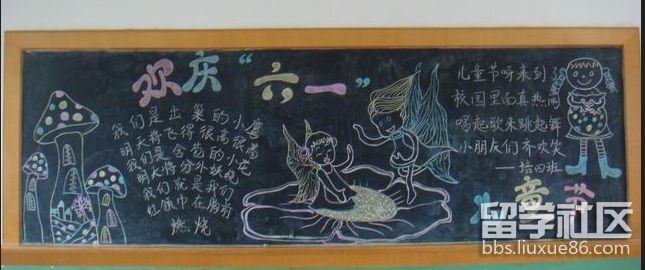 欢庆“六一”
我们是出巢的小鹰
明天将飞得很高很高
我们是含苞的小花
明天将分外妖娆
我们就是我们
红领巾在胸前
燃烧
儿童节呀来到了
校园里面真热闹
唱起歌来跳起舞
小朋友们齐欢笑
——培四班
儿童节
留学社区
bbs.liuxue86.com